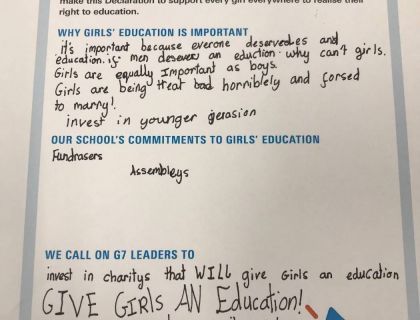 make this Declaration to support every girl everywhere to realise their
right to education.
WHY GIRLS' EDUCATION IS IMPORTANT
It's important because everone deservedes and
education. if men desever an eduction why can't girls.
Girls are equally Important as boys.
Girls are being treat bad horribley and forsed
to marry!
invest in younger gerasion
OUR SCHOOL'S COMMITMENTS TO GIRLS' EDUCATION
Fundrasers
Assembleys
WE CALL ON G7 LEADERS TO
invest in charitys that WILL give Girls an education
GIVE GIRLS AN Education!